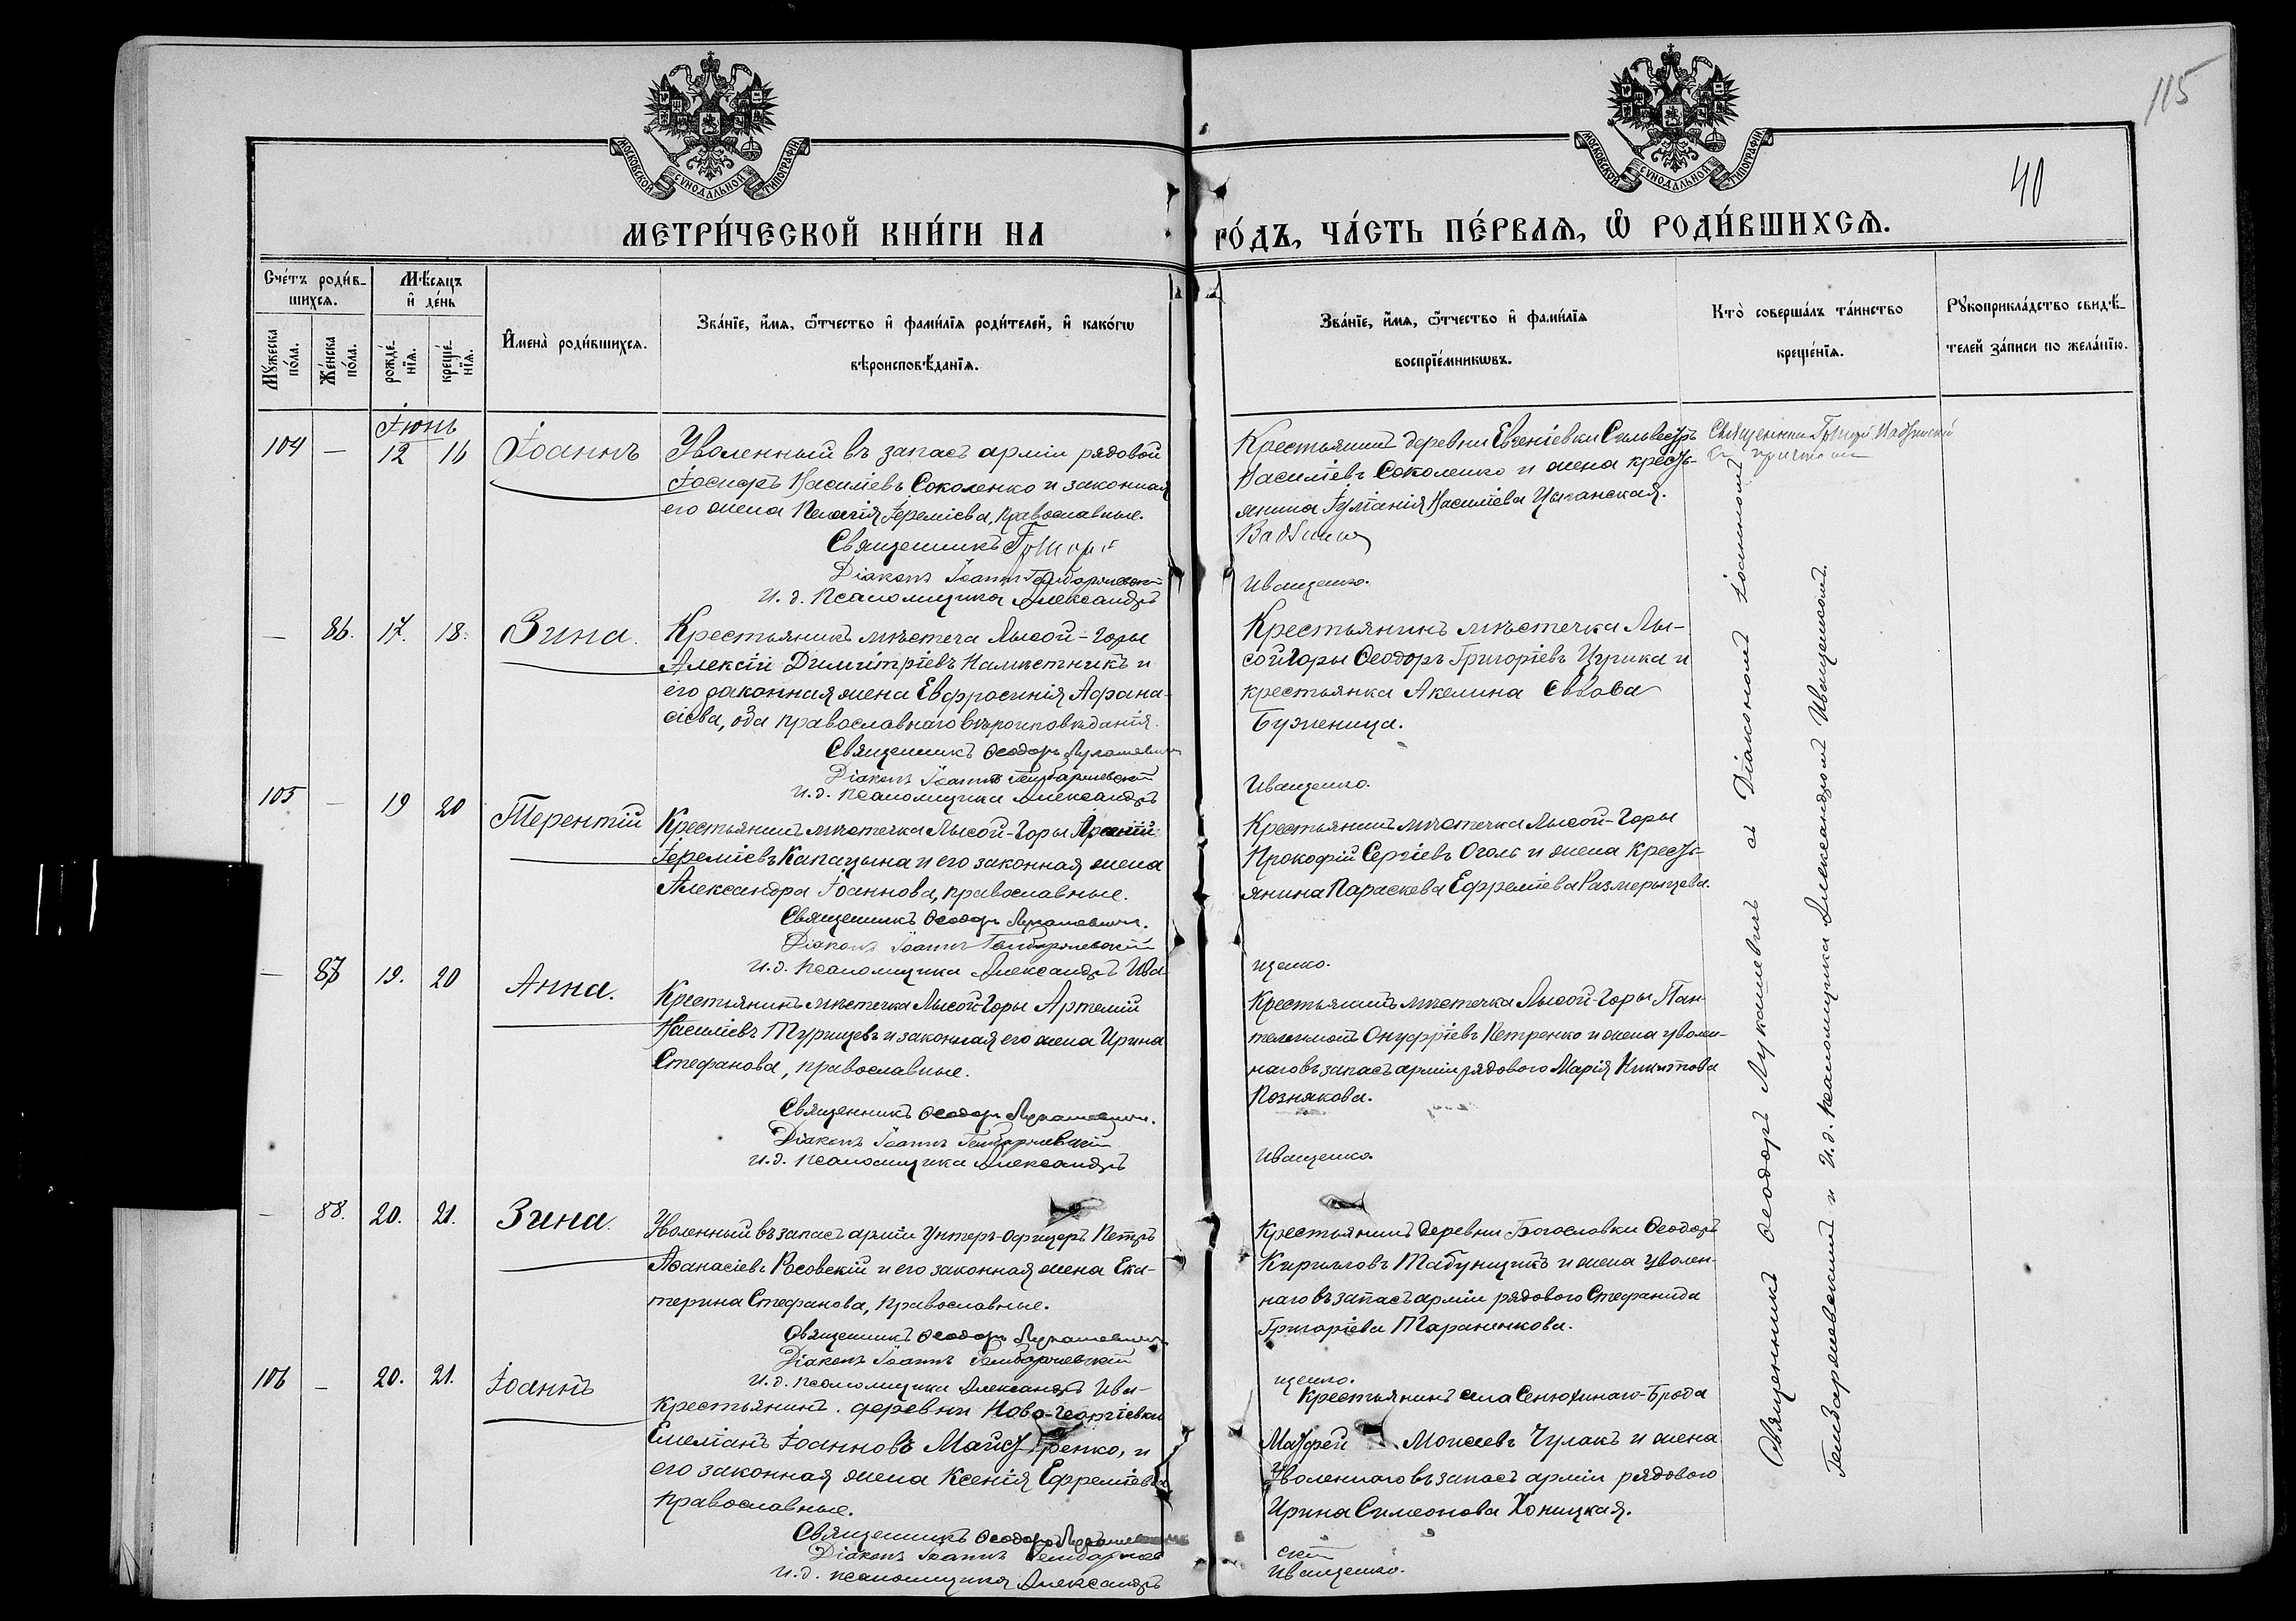 115
40
МОСКОВСКОЙ СУНОДАЛЬНОЙ ТИПОГРАФІИ
МОСКОВСКОЙ СУНОДАЛЬНОЙ ТИПОГРАФІИ
МЕТРИ́ЧЕСКОЙ КНИ́ГИ НА
ГО́ДЪ, ЧА́СТЬ ПЕ́РВАЯ, Ѡ҆ РОДИ́ВШИХСЯ.
Сче́тъ роди́в-
шихся.
Мѣ́сяцъ
и҆ де́нь
Му́жеска по́ла.
Же́нска по́ла.
рожде́-
нїя.
креще́-
нїя.
И҆мена̀ роди́вшихся.
Зва́нїе, и҆́мя, ѻ҆́тчество и҆ фами́лїя роди́телей, и҆ како́гѡ
вѣроисповѣ́данїя.
Зва́нїе, и҆́мя, ѻ҆́тчество и҆ фами́лїя
воспрїе́мникѡвъ.
Кто̀ соверша́лъ та́инство
креще́нїя.
Рукоприкла́дство свидѣ́-
телей за́писи по жела́нїю.
Іюнь
104 — 12 16 Іоаннъ
Уволенный въ запасъ арміи рядовой
Іосифъ Василіевъ Соколенко и законная
его жена Пелагія Іереміева, православные.
Священникъ Григорій
Діаконъ Іоаннъ
И. д. Псаломщика Александръ
Крестьянинъ деревни Евгеніевки Сильвестръ
Василіевъ Соколенко и жена кресть-
янина Іуліанія Василіева Цыганская.
Иващенко.
Священникъ Григорій
— 86. 17. 18. Зина.
Крестьянинъ мѣстечка Лысой-Горы
Алексій Димитріевъ Намѣстникъ и
его законная жена Евфросинія Афана-
сіева, оба православнаго вѣроисповѣданія.
Священникъ Ѳеодоръ Лукашевичъ
Діаконъ Іоаннъ
И. д. Псаломщика Александръ
Крестьянинъ мѣстечка Лы-
сой Горы Ѳеодоръ Григоріевъ Цурика и
крестьянка Акелина Саввова
Буженица.
Иващенко.
105 — 19 20 Терентій
Крестьянинъ мѣстечка Лысой-Горы Арсеній
Іереміевъ Капацына и его законная жена
Александра Іоаннова, православные.
Священникъ Ѳеодоръ Лукашевичъ.
Діаконъ Іоаннъ
И. д. Псаломщика Александръ Ива-
Крестьянинъ мѣстечка Лысой-Горы
Прокофій Сергіевъ Оголь и жена кресть-
янина Параскева Ефреміева Размерицева.
щенко.
— 87 19. 20 Анна.
Крестьянинъ мѣстечка Лысой Горы Артемій
Василіевъ Турищевъ и законная его жена Ирина
Стефанова, православные.
Священникъ Ѳеодоръ Лукашевичъ.
Діаконъ Іоаннъ
И. д. Псаломщика Александръ
Крестьянинъ мѣстечка Лысой-Горы Пан-
телеимонъ Онуфріевъ Петренко и жена уволен-
наго въ запасъ арміи рядового Марія Никитова
Познякова.
Иващенко.
— 88. 20. 21. Зина.
Уволенный въ запасъ арміи Унтеръ-Офицеръ Петръ
Аѳанасіевъ Росовскій и его законная жена Ека-
терина Стефанова, православные.
Священникъ Ѳеодоръ Лукашевичъ
Діаконъ Іоаннъ
И. д. Псаломщика Александръ Ива-
Крестьянинъ деревни Богословки Ѳеодоръ
Кирилловъ Табунщикъ и жена уволен-
наго въ запасъ арміи рядового Стефанида
Григоріева Тараненкова.
щенко.
106 — 20. 21. Іоаннъ
Крестьянинъ деревни Ново-Георгіевки
Емеліанъ Іоанновъ Майстренко, и
его законная жена Ксенія Ефреміева
православные.
Священникъ Ѳеодоръ
Діаконъ Іоаннъ
И. д. псаломщика Александръ
Крестьянинъ села Сенюхинаго-Брода
Матфей Моисеевъ Чулакъ и жена
Уволеннаго въ запасъ арміи рядового
Ирина Симеонова Хоницкая.
скій
Иващенко.
Священникъ Ѳеодоръ Лукашевичъ съ Діакономъ Іоанномъ
и И. д. Псаломщика Александромъ Иващенкомъ.